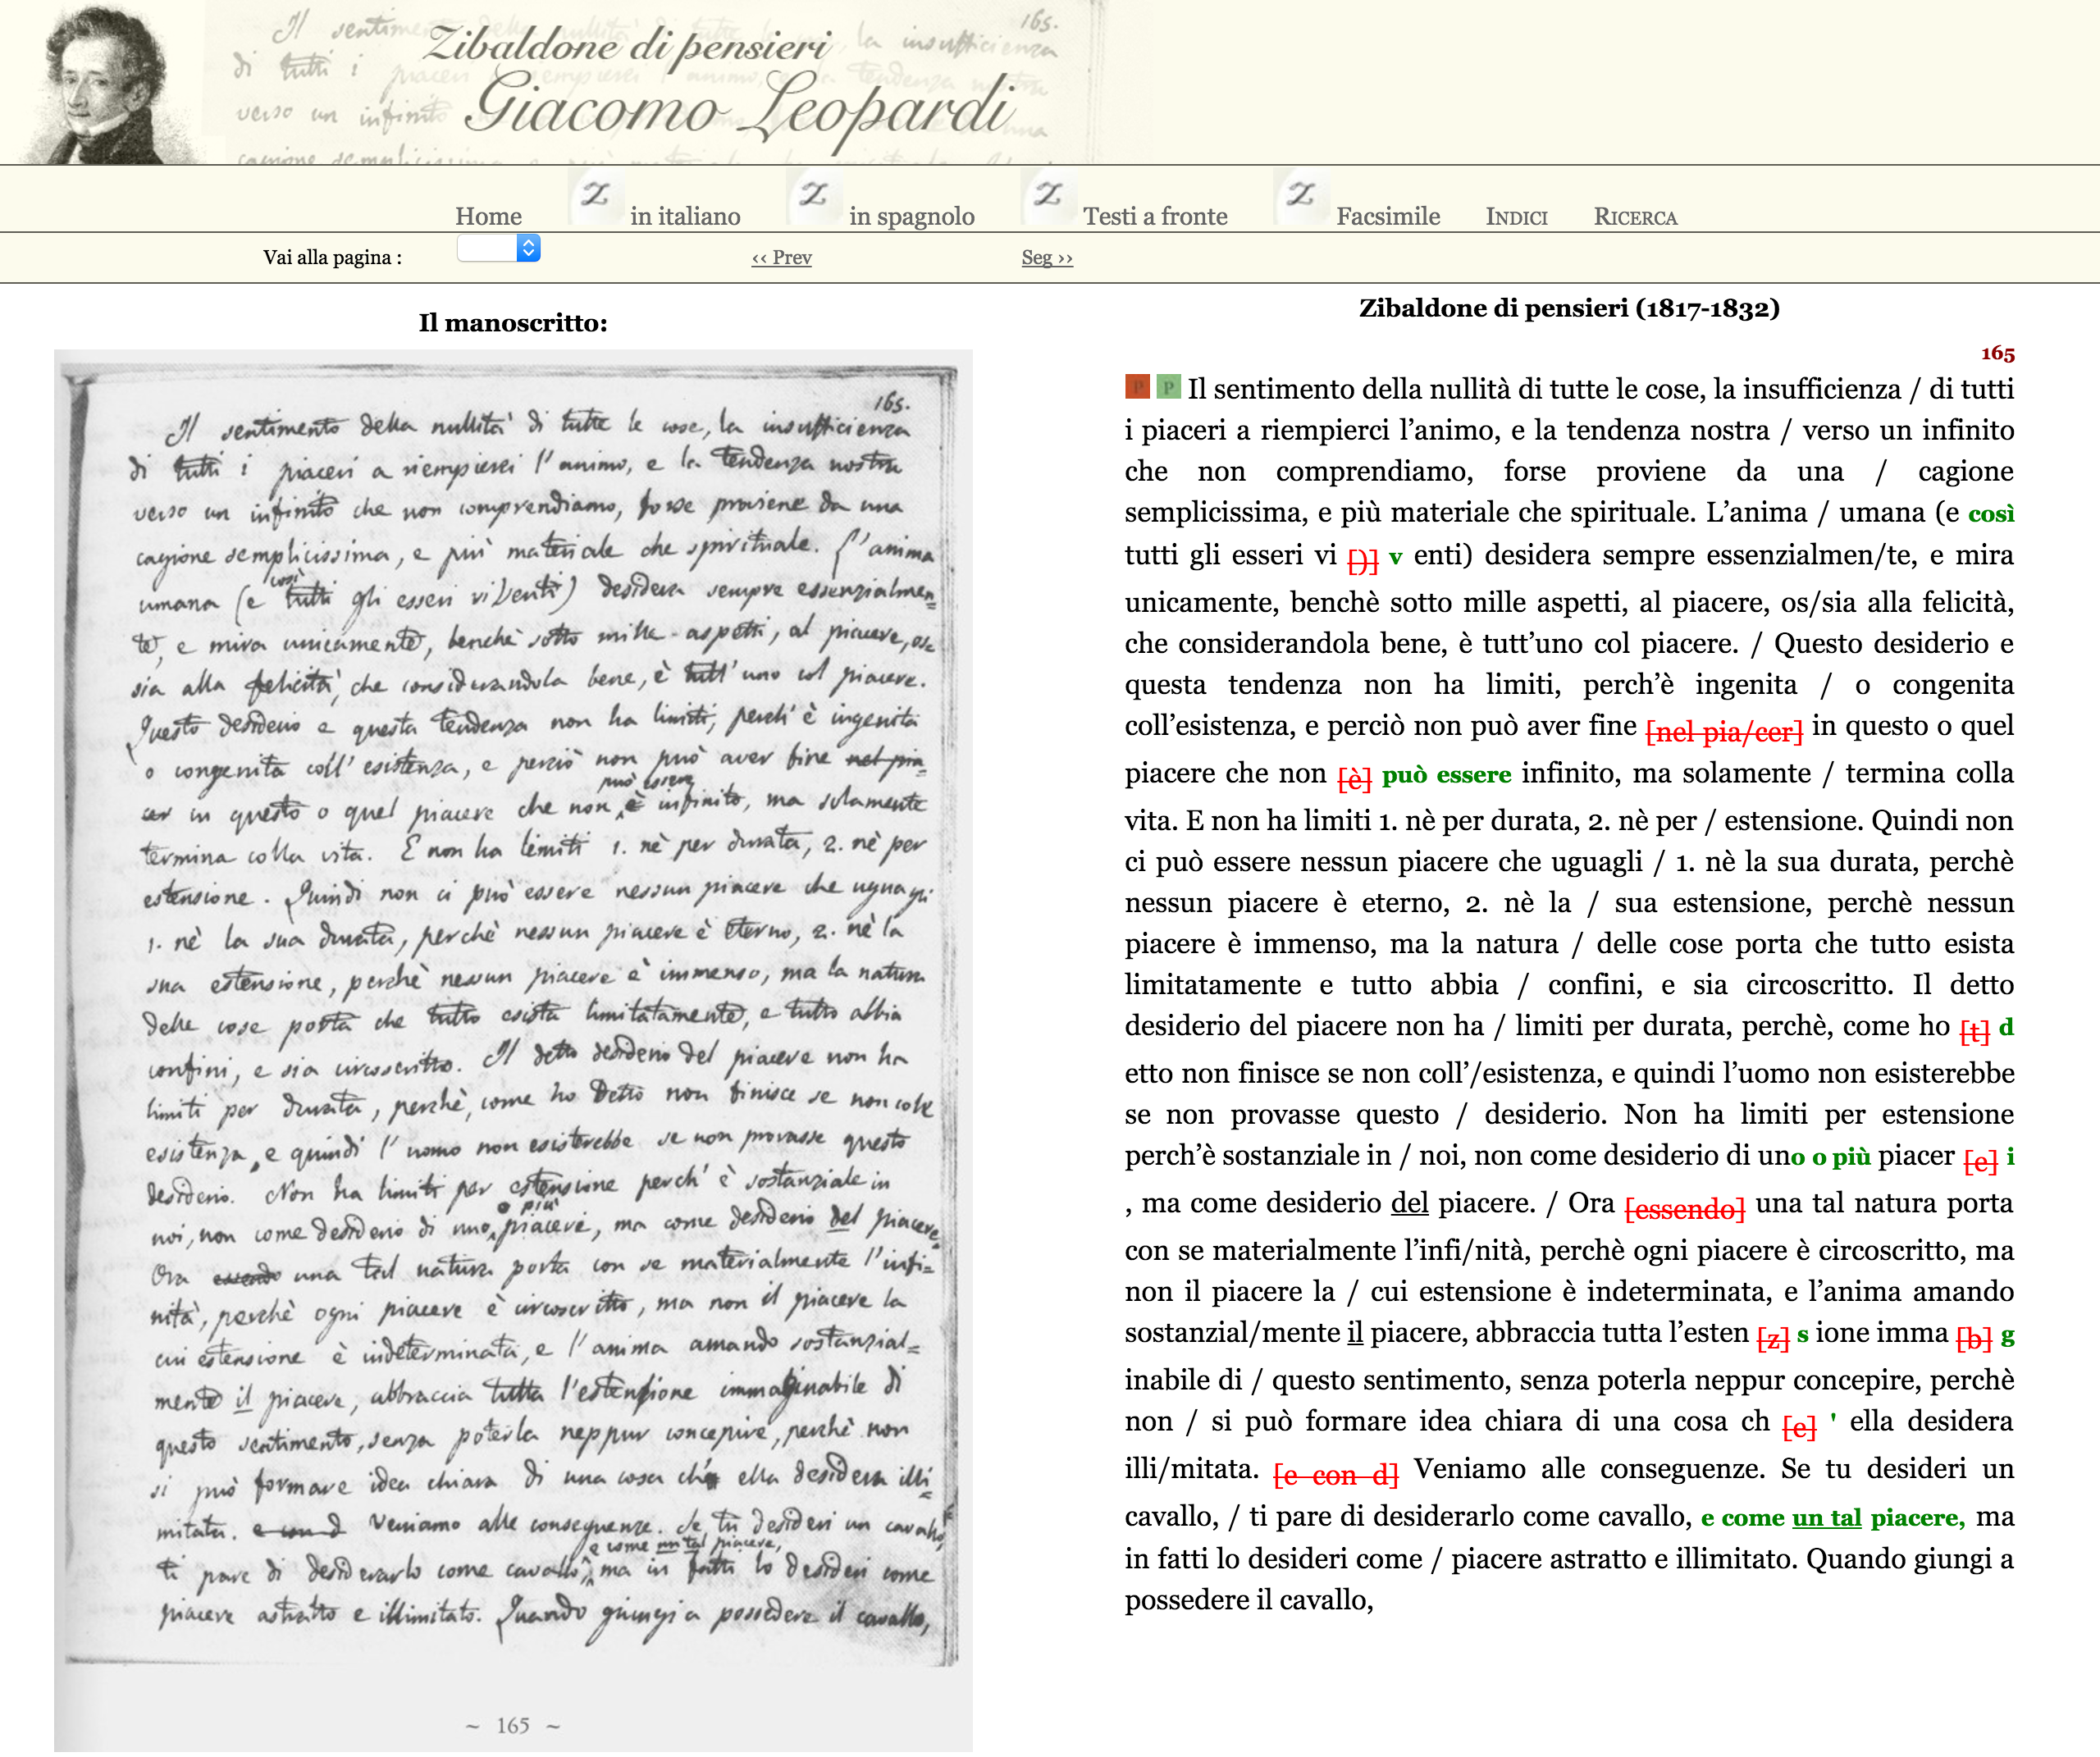 Il sentimento 165.
di tutti i la insufficienza
verso un infinito
Zibaldone di pensieri
Giacomo Leopardi
Home in italiano in spagnolo Testi a fronte Facsimile INDICI RICERCA
Vai alla pagina : ‹‹ Prev Seg ››
Il manoscritto:
165.
Il sentimento della nullità di tutte le cose, la insufficienza
di tutti i piaceri a riempierci l'animo, e la tendenza nostra
verso un infinito che non comprendiamo, forse proviene da una
cagione semplicissima, e più materiale che spirituale. L'anima
così
umana (e tutti gli esseri viventi) desidera sempre essenzialmen=
te, e mira unicamente, benchè sotto mille aspetti, al piacere, os=
sia alla felicità, che considerandola bene, è tutt'uno col piacere.
Questo desiderio e questa tendenza non ha limiti, perch'è ingenita
o congenita coll'esistenza, e perciò non può aver fine nel pia=
può essere
cer in questo o quel piacere che non è infinito, ma solamente
termina colla vita. E non ha limiti 1. nè per durata, 2. nè per
estensione. Quindi non ci può essere nessun piacere che uguagli
1. nè la sua durata, perchè nessun piacere è eterno, 2. nè la
sua estensione, perchè nessun piacere è immenso, ma la natura
delle cose porta che tutto esista limitatamente, e tutto abbia
confini, e sia circoscritto. Il detto desiderio del piacere non ha
limiti per durata, perchè, come ho detto non finisce se non coll'
esistenza, e quindi l'uomo non esisterebbe se non provasse questo
desiderio. Non ha limiti per estensione perch'è sostanziale in
o più
noi, non come desiderio di uno piaceri, ma come desiderio del piacere.
Ora essendo una tal natura porta con se materialmente l'infi=
nità, perchè ogni piacere è circoscritto, ma non il piacere la
cui estensione è indeterminata, e l'anima amando sostanzial=
mente il piacere, abbraccia tutta l'estensione immaginabile di
questo sentimento, senza poterla neppur concepire, perchè non
si può formare idea chiara di una cosa ch' ella desidera illi=
mitata. e con d Veniamo alle conseguenze. Se tu desideri un cavallo,
e come un tal piacere,
ti pare di desiderarlo come cavallo, ma in fatti lo desideri come
piacere astratto e illimitato. Quando giungi a possedere il cavallo,
~ 165 ~
Zibaldone di pensieri (1817-1832)
165
P P Il sentimento della nullità di tutte le cose, la insufficienza / di tutti
i piaceri a riempierci l'animo, e la tendenza nostra / verso un infinito
che non comprendiamo, forse proviene da una / cagione
semplicissima, e più materiale che spirituale. L'anima / umana (e così
tutti gli esseri vi [)] v enti) desidera sempre essenzialmen/te, e mira
unicamente, benchè sotto mille aspetti, al piacere, os/sia alla felicità,
che considerandola bene, è tutt'uno col piacere. / Questo desiderio e
questa tendenza non ha limiti, perch'è ingenita / o congenita
coll'esistenza, e perciò non può aver fine [nel pia/cer] in questo o quel
piacere che non [è] può essere infinito, ma solamente / termina colla
vita. E non ha limiti 1. nè per durata, 2. nè per / estensione. Quindi non
ci può essere nessun piacere che uguagli / 1. nè la sua durata, perchè
nessun piacere è eterno, 2. nè la / sua estensione, perchè nessun
piacere è immenso, ma la natura / delle cose porta che tutto esista
limitatamente e tutto abbia / confini, e sia circoscritto. Il detto
desiderio del piacere non ha / limiti per durata, perchè, come ho [t] d
etto non finisce se non coll'/esistenza, e quindi l'uomo non esisterebbe
se non provasse questo / desiderio. Non ha limiti per estensione
perch'è sostanziale in / noi, non come desiderio di uno o più piacer [e] i
, ma come desiderio del piacere. / Ora [essendo] una tal natura porta
con se materialmente l'infi/nità, perchè ogni piacere è circoscritto, ma
non il piacere la / cui estensione è indeterminata, e l'anima amando
sostanzial/mente il piacere, abbraccia tutta l'esten [z] s ione imma [b] g
inabile di / questo sentimento, senza poterla neppur concepire, perchè
non / si può formare idea chiara di una cosa ch [e] ' ella desidera
illi/mitata. [e con d] Veniamo alle conseguenze. Se tu desideri un
cavallo, / ti pare di desiderarlo come cavallo, e come un tal piacere, ma
in fatti lo desideri come / piacere astratto e illimitato. Quando giungi a
possedere il cavallo,